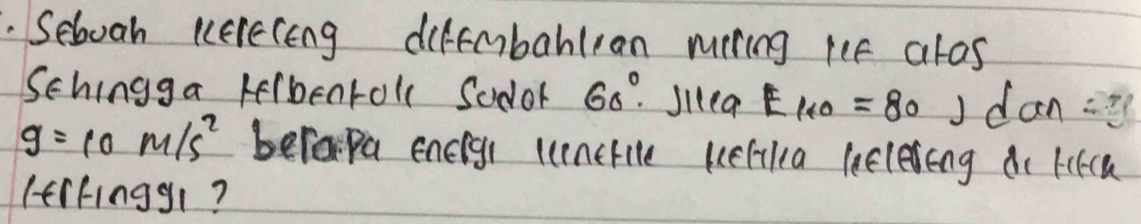 . Sebuah kelereng ditembahkan miring ke atas
Sehingga terbentuk Sudot 60°. Jika Eko = 80 J dan
g = 10 m/s² berapa energi kinetik ketika kelereng di titik
tertinggi?